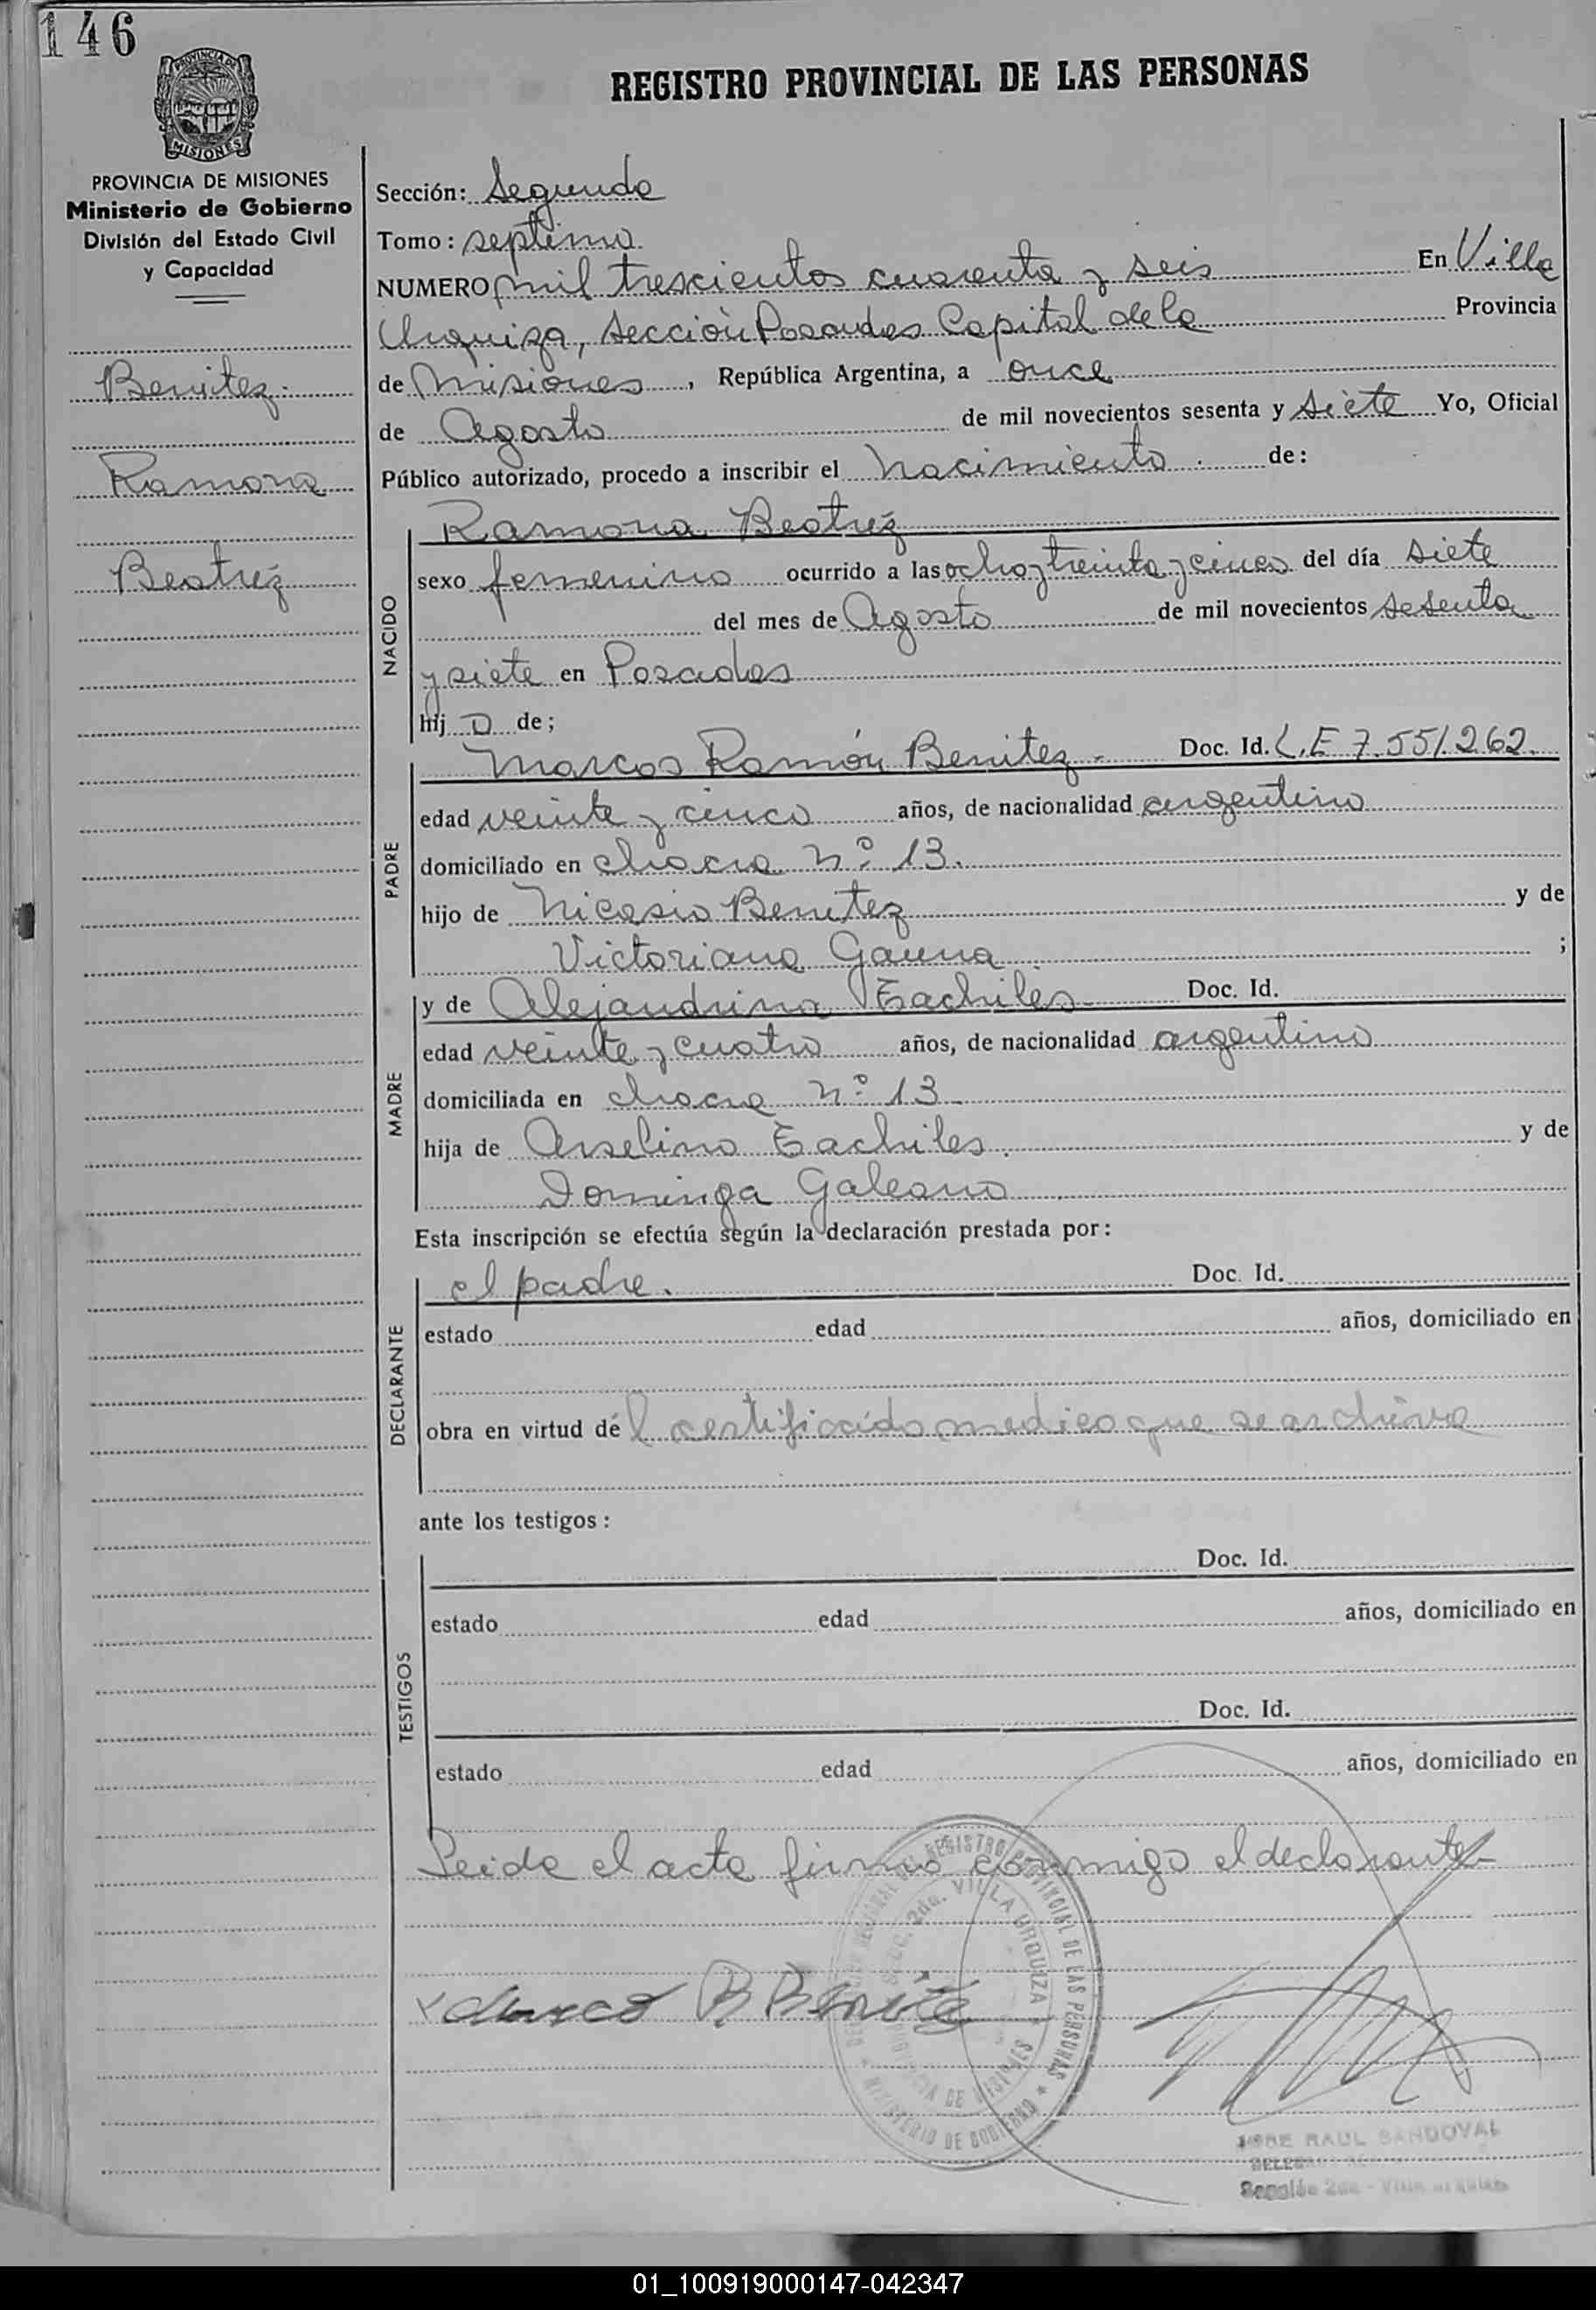 146
PROVINCIA DE
MISIONES
REGISTRO PROVINCIAL DE LAS PERSONAS
PROVINCIA DE MISIONES
Ministerio de Gobierno
División del Estado Civil
y Capacidad
Benitez
Ramona
Beatréz
Sección: Segunda
Tomo: septimo
NUMERO mil trescientos cuarenta y seis En Villa
Urquiza, sección Posadas Capital de la Provincia
de Misiones, República Argentina, a once
de Agosto de mil novecientos sesenta y siete Yo, Oficial
Público autorizado, procedo a inscribir el nacimiento. de:
NACIDO
Ramona Beatréz
sexo femenino ocurrido a las ocho y treinta y cinco del día siete
del mes de Agosto de mil novecientos sesenta
y siete en Posadas
hij a de;
PADRE
Marcos Ramón Benitez - Doc. Id. L.E 7.551.262.
edad veinte y cinco años, de nacionalidad argentino
domiciliado en chacra Nº 13.
hijo de Nicasio Benitez y de
Victoriana Gauna. ;
MADRE
y de Alejandrina Eachiles- Doc. Id.
edad veinte y cuatro años, de nacionalidad argentino
domiciliada en chacra Nº 13-
hija de Anselino Eachiles. y de
Dominga Galeano
Esta inscripción se efectúa según la declaración prestada por:
DECLARANTE
el padre. Doc. Id.
estado edad años, domiciliado en
obra en virtud de l certificado medico que se archiva
ante los testigos:
TESTIGOS
Doc. Id.
estado edad años, domiciliado en
Doc. Id.
estado edad años, domiciliado en
Leida el acta firma conmigo el declarante-
REGISTRO PROVINCIAL DE LAS PERSONAS * MINISTERIO DE GOBIERNO *
SECC. 2da. VILLA URQUIZA * PROVINCIA DE MISIONES
Marcos R Benitez
JOSE RAUL SANDOVAL
Sección 2da - Villa Urquiza
01_100919000147-042347